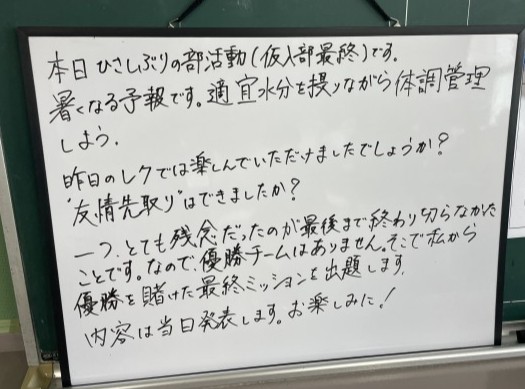 本日ひさしぶりの部活動(仮入部最終)です。
暑くなる予報です。適宜水分を摂りながら体調管理
しよう.
昨日のレクでは楽しんでいただけましたでしょうか?
"友情先取り"はできましたか?
一つ、とても残念だったのが最後まで終わり切らなかった
ことです。なので、優勝チームはありません。そこで私から
優勝を賭けた最終ミッションを出題します.
内容は当日発表します。お楽しみに!